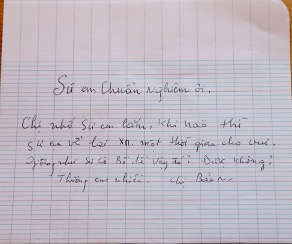 Sư em Chuẩn Nghiêm ơi.
Chị nhớ Sư em lắm, khi nào thì
sư em về lại XM. một thời gian cho vui.
giống như Sư cô Bồ đề vậy đó! Được không?
Thương em nhiều. chị Bảo